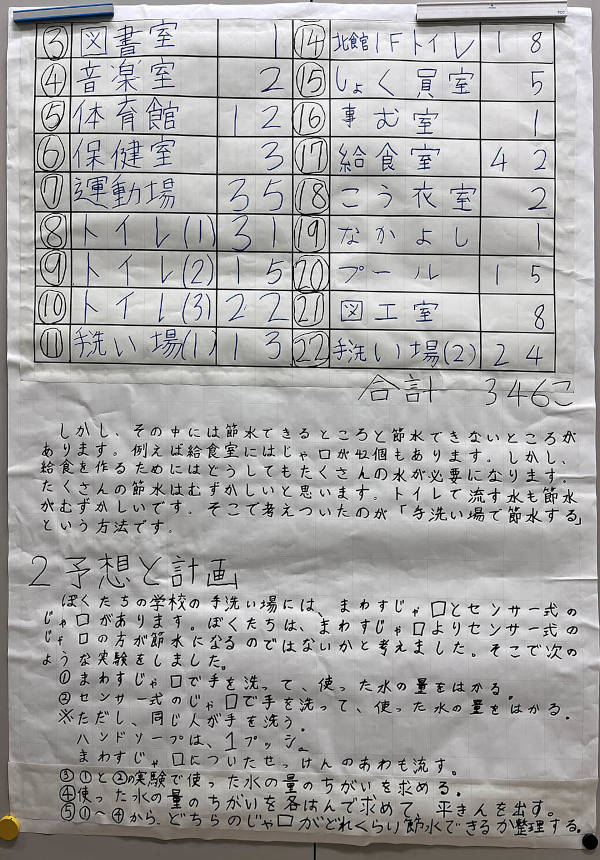 ③ 図書室 1 ⑭ 北館1Fトイレ 18
④ 音楽室 2 ⑮ しょく員室 5
⑤ 体育館 12 ⑯ 事む室 1
⑥ 保健室 3 ⑰ 給食室 42
⑦ 運動場 35 ⑱ こう衣室 2
⑧ トイレ(1) 31 ⑲ なかよし 1
⑨ トイレ(2) 15 ⑳ プール 15
⑩ トイレ(3) 22 ㉑ 図工室 8
⑪ 手洗い場(1) 13 ㉒ 手洗い場(2) 24
合計 346こ
しかし、その中には節水できるところと節水できないところが
あります。例えば給食室にはじゃ口が42個もあります。しかし、
給食を作るためにはどうしてもたくさんの水が必要になります。
たくさんの節水はむずかしいと思います。トイレで流す水も節水
がむずかしいです。そこで考えついたのが「手洗い場で節水する」
という方法です。
2 予想と計画
ぼくたちの学校の手洗い場には、まわすじゃ口とセンサー式の
じゃ口があります。ぼくたちは、まわすじゃ口よりセンサー式の
じゃ口の方が節水になるのではないかと考えました。そこで次の
ような実験をしました。
①まわすじゃ口で手を洗って、使った水の量をはかる。
②センサー式のじゃ口で手を洗って、使った水の量をはかる。
※ただし、同じ人が手を洗う。
ハンドソープは、1プッシュ。
まわすじゃ口についたせっけんのあわも流す。
③①と②の実験で使った水の量のちがいを求める。
④使った水の量のちがいを各はんで求めて、平きんを出す。
⑤①〜④から、どちらのじゃ口がどれくらい節水できるか整理する。